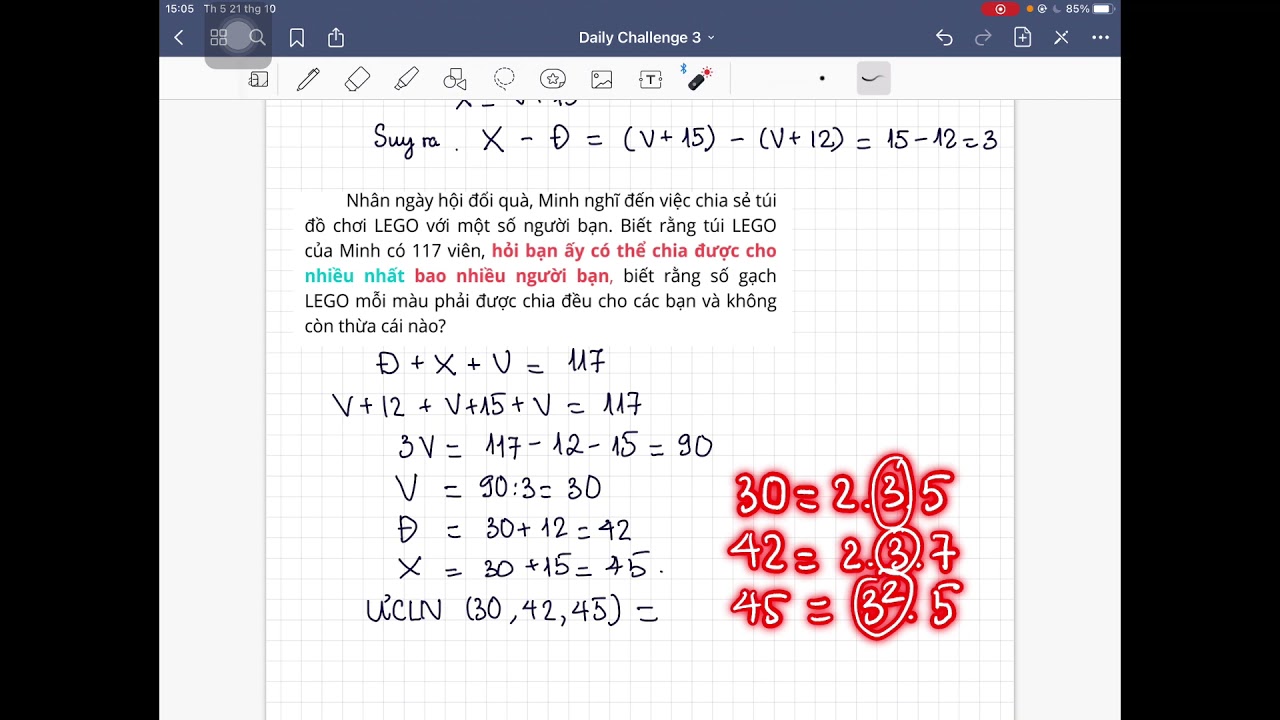 15:05 Th 5 21 thg 10
85%
Daily Challenge 3
Suy ra . X - Đ = (V+15) - (V+12) = 15-12=3
Nhân ngày hội đổi quà, Minh nghĩ đến việc chia sẻ túi
đồ chơi LEGO với một số người bạn. Biết rằng túi LEGO
của Minh có 117 viên, hỏi bạn ấy có thể chia được cho
nhiều nhất bao nhiêu người bạn, biết rằng số gạch
LEGO mỗi màu phải được chia đều cho các bạn và không
còn thừa cái nào?
Đ + X + V = 117
V+12 + V+15+V = 117
3V = 117-12-15 = 90
V = 90:3= 30
Đ = 30+12=42
X = 30+15= 45.
ƯCLN (30,42,45) =
30= 2.3.5
42= 2.3.7
45 = 3².5